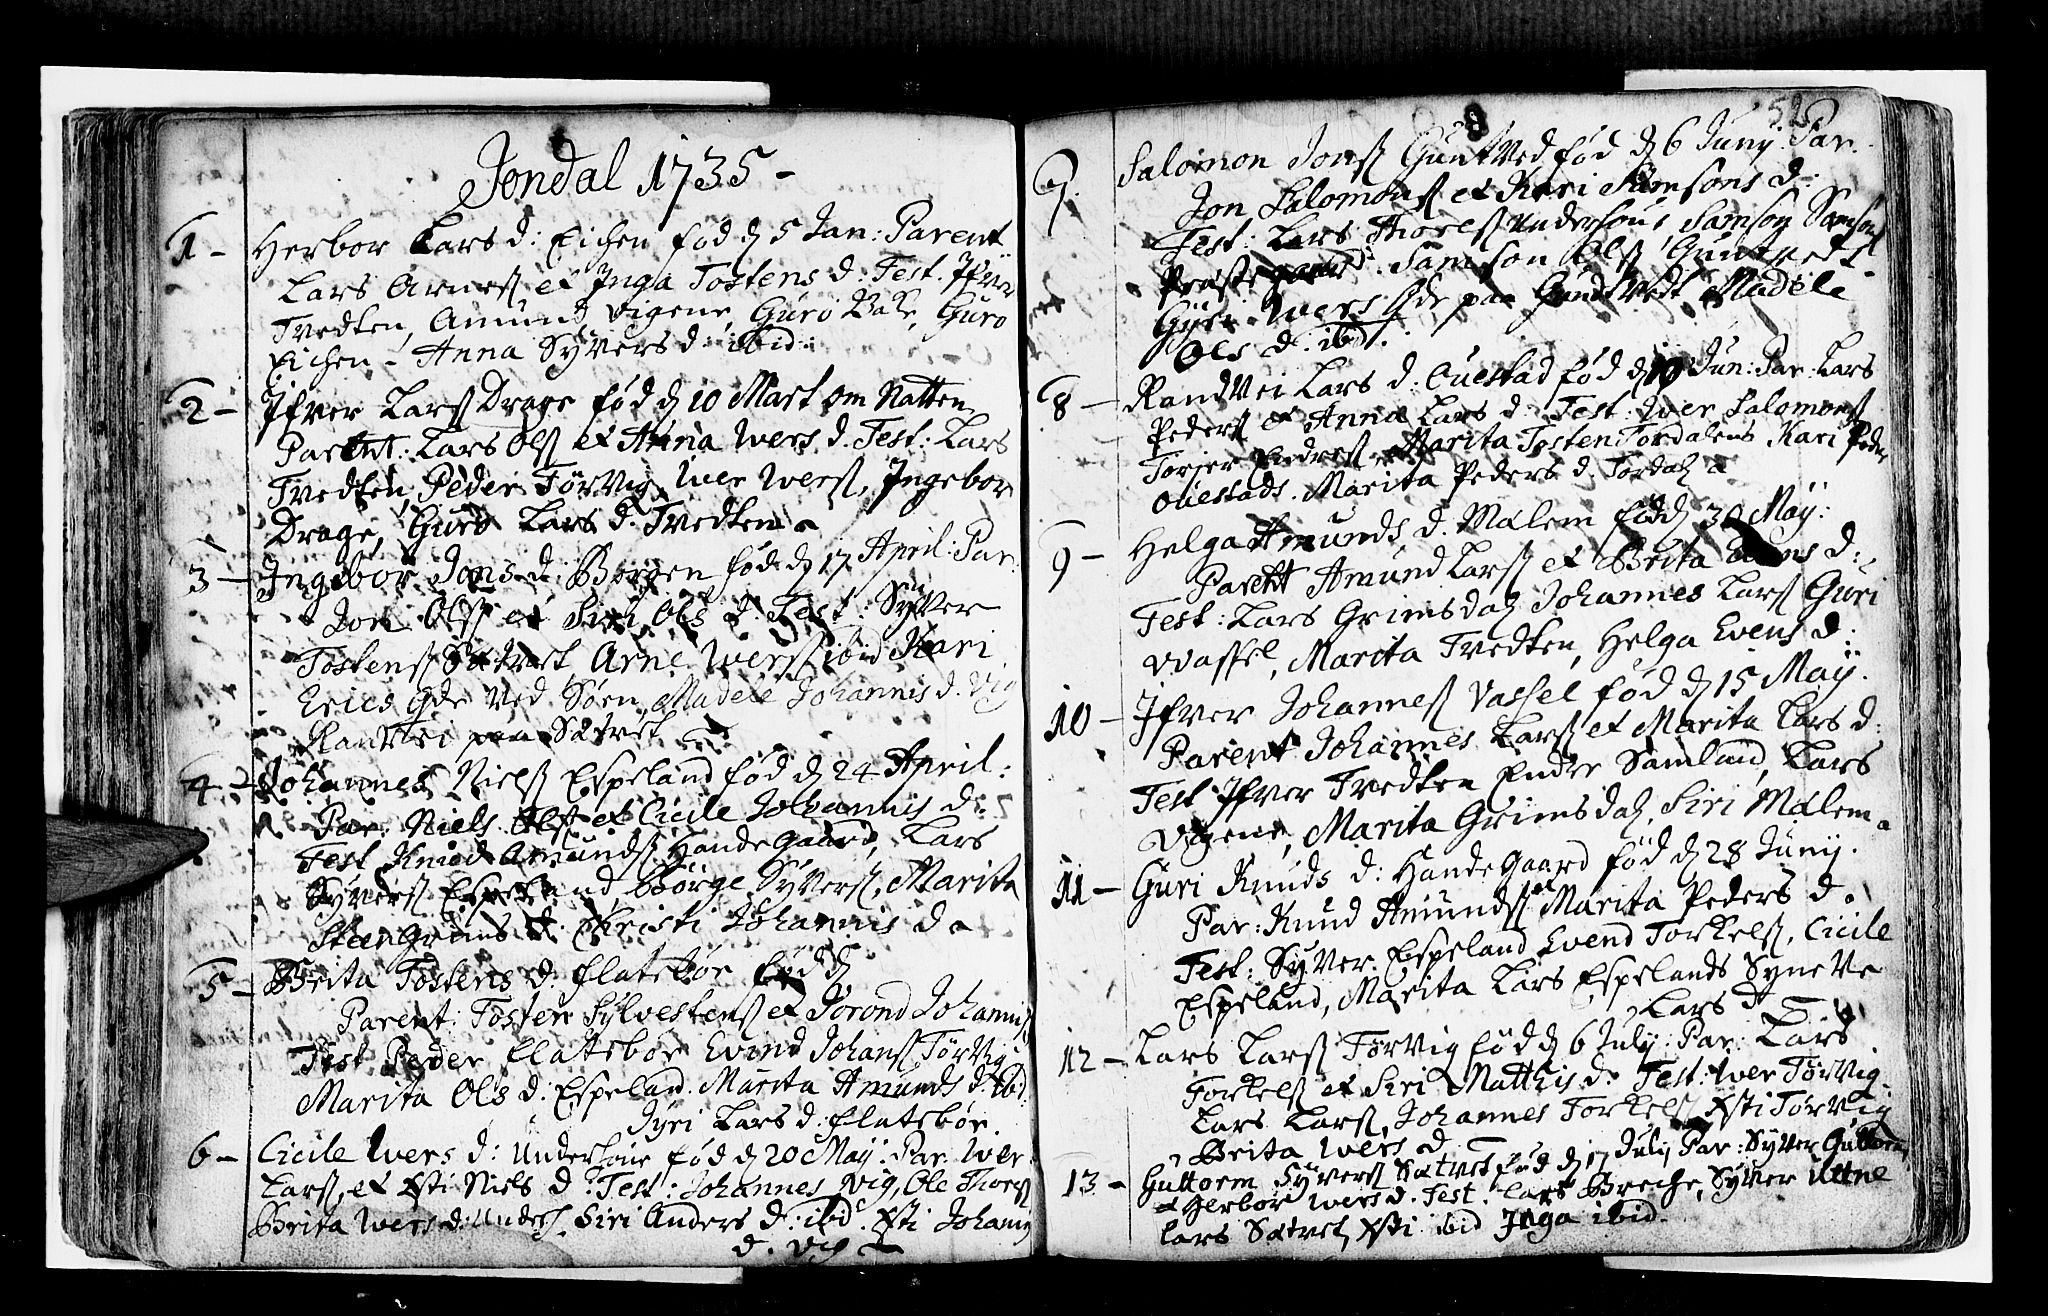 Jondal 1735 -
1 - Herbor Lars d: Eichen fød d 5 Jan: Parent
Lars Arnes et Inga Tostens d: Test. Ifver
Tvedten, Amund Vigene, Guro Bake, Guro
Eichen - Anna Syvers d: ibid:
2 - Ifver Lars Drage fød d 10 Mart om Natten
Parent: Lars Ols et Anna Ivers d. Test: Lars
Tvedten, Peder Tørvig, Iver Ivers, Ingebor
Drage, Guro Lars d. Tvedten
3 - Ingebor Jons d: Borgen fød d 17 April: Par.
Jon Ols et Siri Ols d. Test: Syver
Tostens Sætvet Arne Ivers ibid Kari
Erics Gde ved Søen, Madele Johannis d. Vig
Randvei paa Sætvet
4 - Johannes Niels Espeland fød d 24 April:
Par: Niels Ols et Cicile Johannis d.
Test Knud Amunds Handegaard, Lars
Syvers Espeland Børge Syvers, Marita
Steengrims d. Christi Johannis d
5 - Brita Tostens d: Flatebør fød d
Parent: Tosten Sylvestens et Jorond Johannis
Test Peder Flatebør Evind Johans Tørvig
Marita Ols d. Espeland. Marita Amunds d. ibd:
Jyri Lars d: Flatebør.
6 - Cicile Ivers d: Underhoue fød d 20 Maij: Par: Iver
Lars, et Xsti Niels d. Test: Johannes Vig, Ole Thores
Brita Ivers d: Unders. Siri Anders d: ibd. Xsti Johannis
d. Vig
52
7. Salomon Jons Guntved fød d 6 Junij Par.
Jon Salomons et Kari Samsons d:
Test: Lars Thores Underhoue Samson Samsons
Præstegaard. Samson Ols Guntvedt.
Gyri Ivers Gde paa Gundtvedt Madele
Ols d: ibd:
8 - Randvei Lars d: Ouestad fød d 10 Jun: Par: Lars
Peders et Anna Lars d. Test: Iver Salomons
Torjer Endres Marita Tosten Tordalens Kari Peder
Ouestads. Marita Peders d. Tordal
9 - Helga Amunds d. Malem fød d 30 Maij:
Parent Amund Lars et Brita d:
Test: Lars Grimsdal Johannes Lars Guri
Vassel, Marita Tvedten, Helga Evens d:
10 - Ifver Johannes Vassel fød d 15 Maij.
Parent Johannes Lars et Marita Lars d:
Test Ifver Tvedten Ender Samland, Lars
Vigene, Marita Grimsdal, Siri Malem
11 - Guri Knuds d: Handegaard fød d 28 Junij.
Par: Knud Amunds et Marita Peders d.
Test: Syver Espeland Evend Torkels, Cicile
Espeland, Marita Lars Espelands Syneve
Lars d
12 - Lars Lars Tørvig fød d 6 July: Par: Lars
Torkels et Siri Matthis d. Test: Iver Tørvig
Lars Lars, Johannes Torkels, Xsti Tørvig
Brita Ivers d
13 - Guttorm Syvers Sætvet fød d 17 July Par: Syver Guttorms
et Herbor Ivers d. Test. Lars Breche, Syver Utne
Lars Sætvet, Xsti ibid Inga ibid.